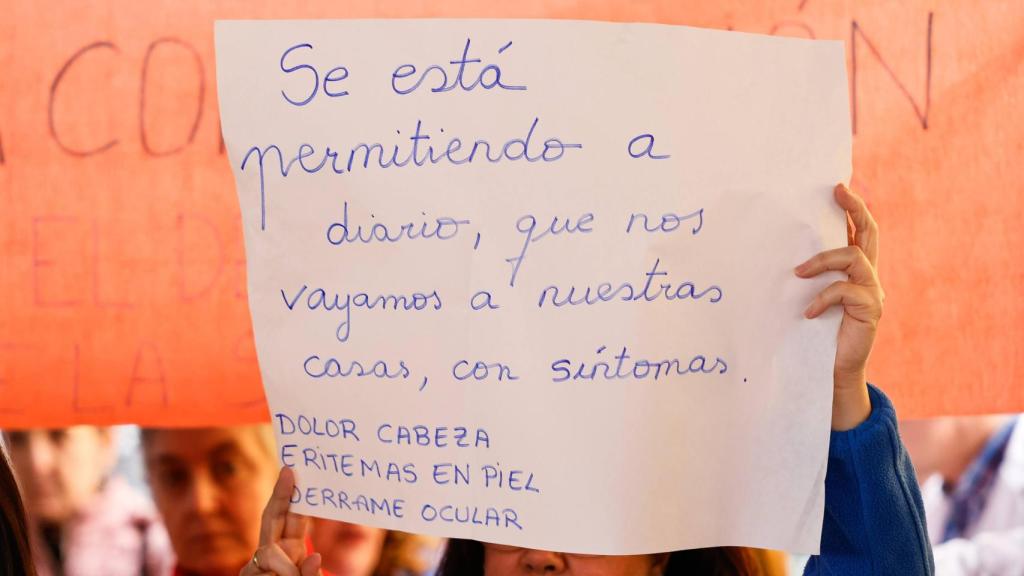 CO
ÓN
EL D
E LA S
Se está
permitiendo a
diario, que nos
vayamos a nuestras
casas, con síntomas.
DOLOR CABEZA
ERITEMAS EN PIEL
DERRAME OCULAR